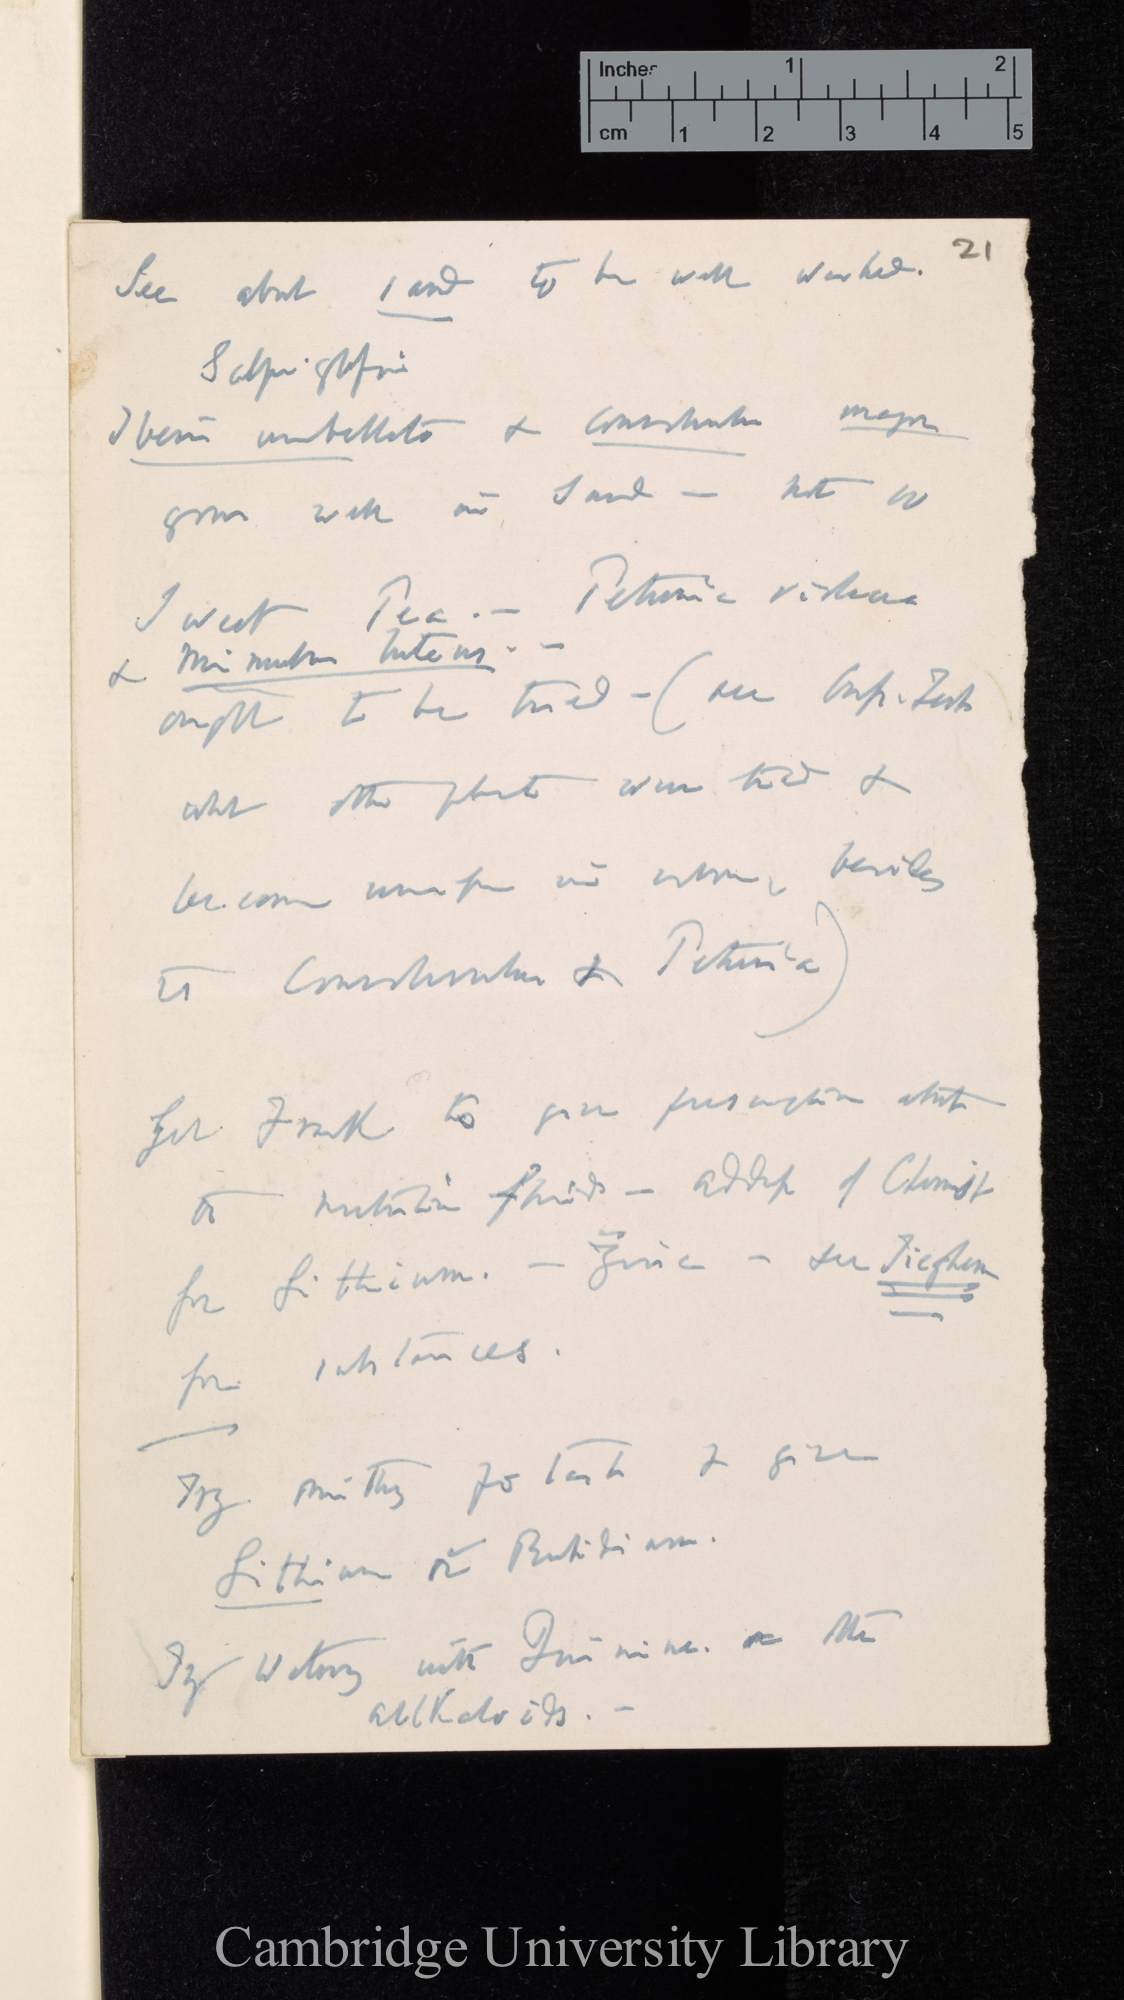 Inches 1 2
cm 1 2 3 4 5
21
See about sand to be well washed.
Salpiglossis
Iberis umbellata & Convolvulus major
grow well in Sand — not so
Sweet Pea. — Petunia violacea
& Mimulus luteus. —
ought to be tried — (see Cross-Fert
what other plants were tried &
become uniform in colour, besides
to Convolvulus & Petunia)
Get Frank to give prescription about
to nutritive fluids — address of Chemist
for Lithium. — Zinc — see Tieghem
for substances.
Try smithy potash & give
Lithium or Rubidium.
Try Watering with Quinine. or other
alkaloids. —
Cambridge University Library